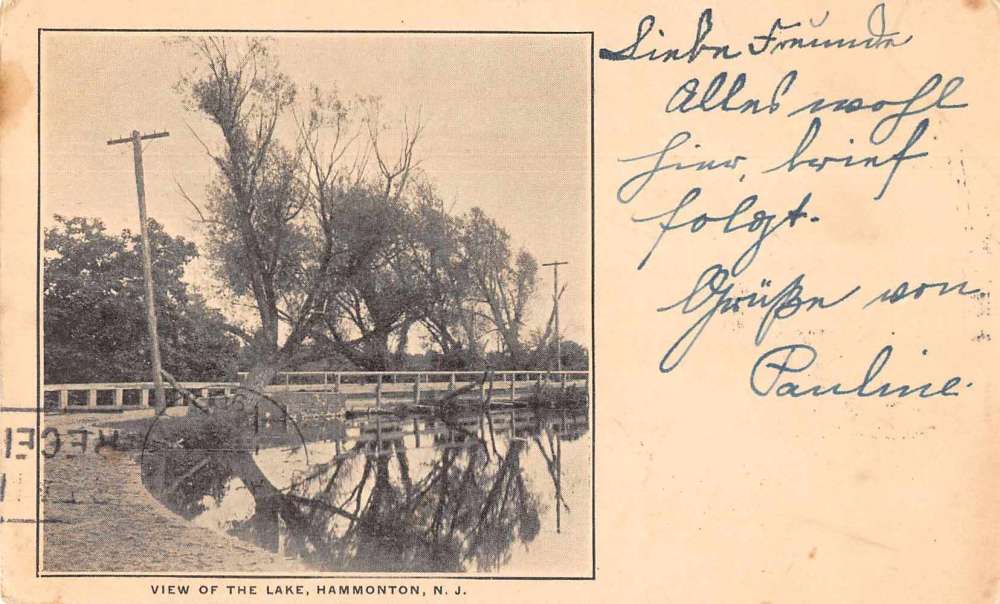 Liebe Freunde
Alles wohl
hier, brief
folgt.
Grüße von
Pauline.
VIEW OF THE LAKE, HAMMONTON, N. J.
RECEI